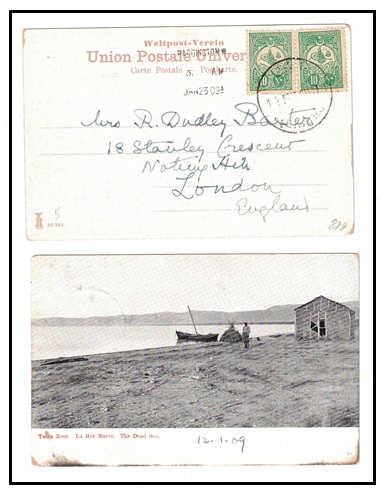 Weltpost-Verein
Union Postale Universelle
Carte Postale Postcarte.
PADDINGTON W
5. AM
JAN 23 09
10 10
Mrs R. Dudley Baxter
18 Stanley Crescent
Notting Hill
London
England
Totes Meer. La Mer Morte. The Dead Sea.
12.1.09